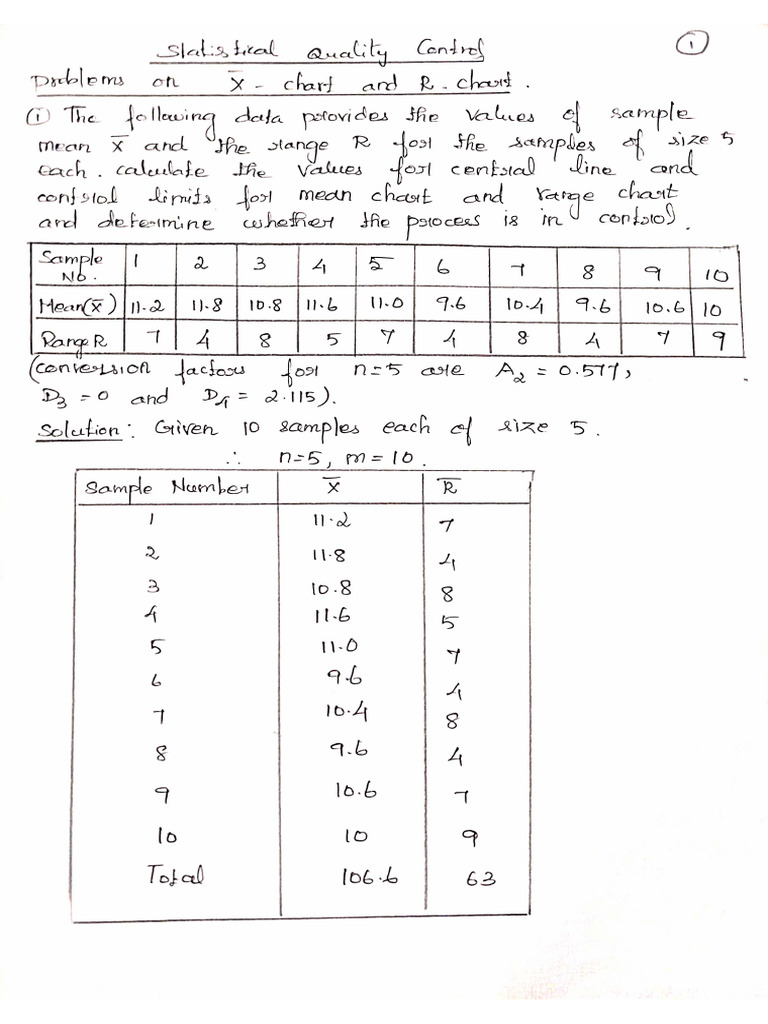 Statistical Quality Control
①
Problems on X̄ - chart and R - chart.
① The following data provides the values of sample
mean X̄ and the range R for the samples of size 5
each. calculate the values for central line and
control limits for mean chart and range chart
and determine whether the process is in control.
Sample No. 1 2 3 4 5 6 7 8 9 10
Mean(X̄) 11.2 11.8 10.8 11.6 11.0 9.6 10.4 9.6 10.6 10
Range R 7 4 8 5 7 4 8 4 7 9
(conversion factors for n=5 are A₂ = 0.577,
D₃ = 0 and D₄ = 2.115).
Solution: Given 10 samples each of size 5.
∴ n=5, m=10.
Sample Number X̄ R̄
1 11.2 7
2 11.8 4
3 10.8 8
4 11.6 5
5 11.0 7
6 9.6 4
7 10.4 8
8 9.6 4
9 10.6 7
10 10 9
Total 106.6 63